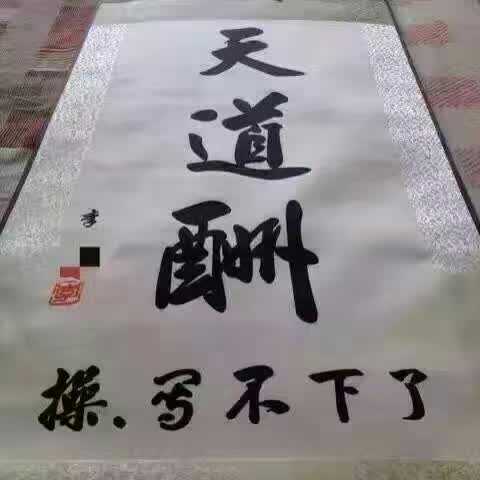 天
道
酬
李
操、写不下了